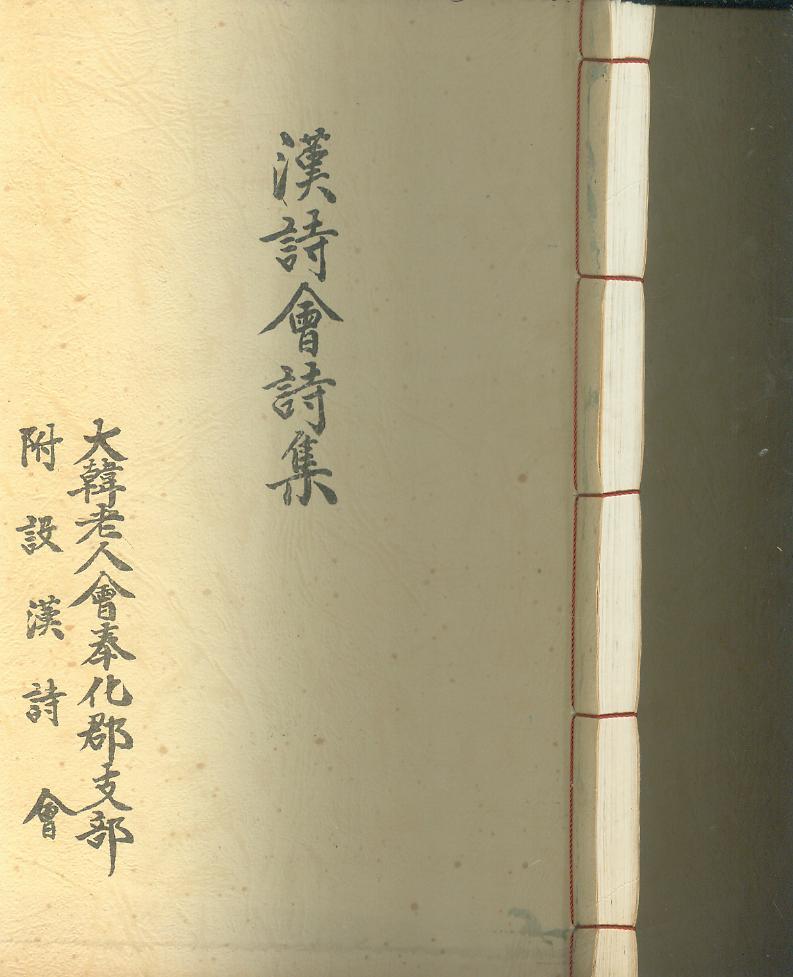 漢詩會詩集
大韓老人會奉化郡支部
附設漢詩會